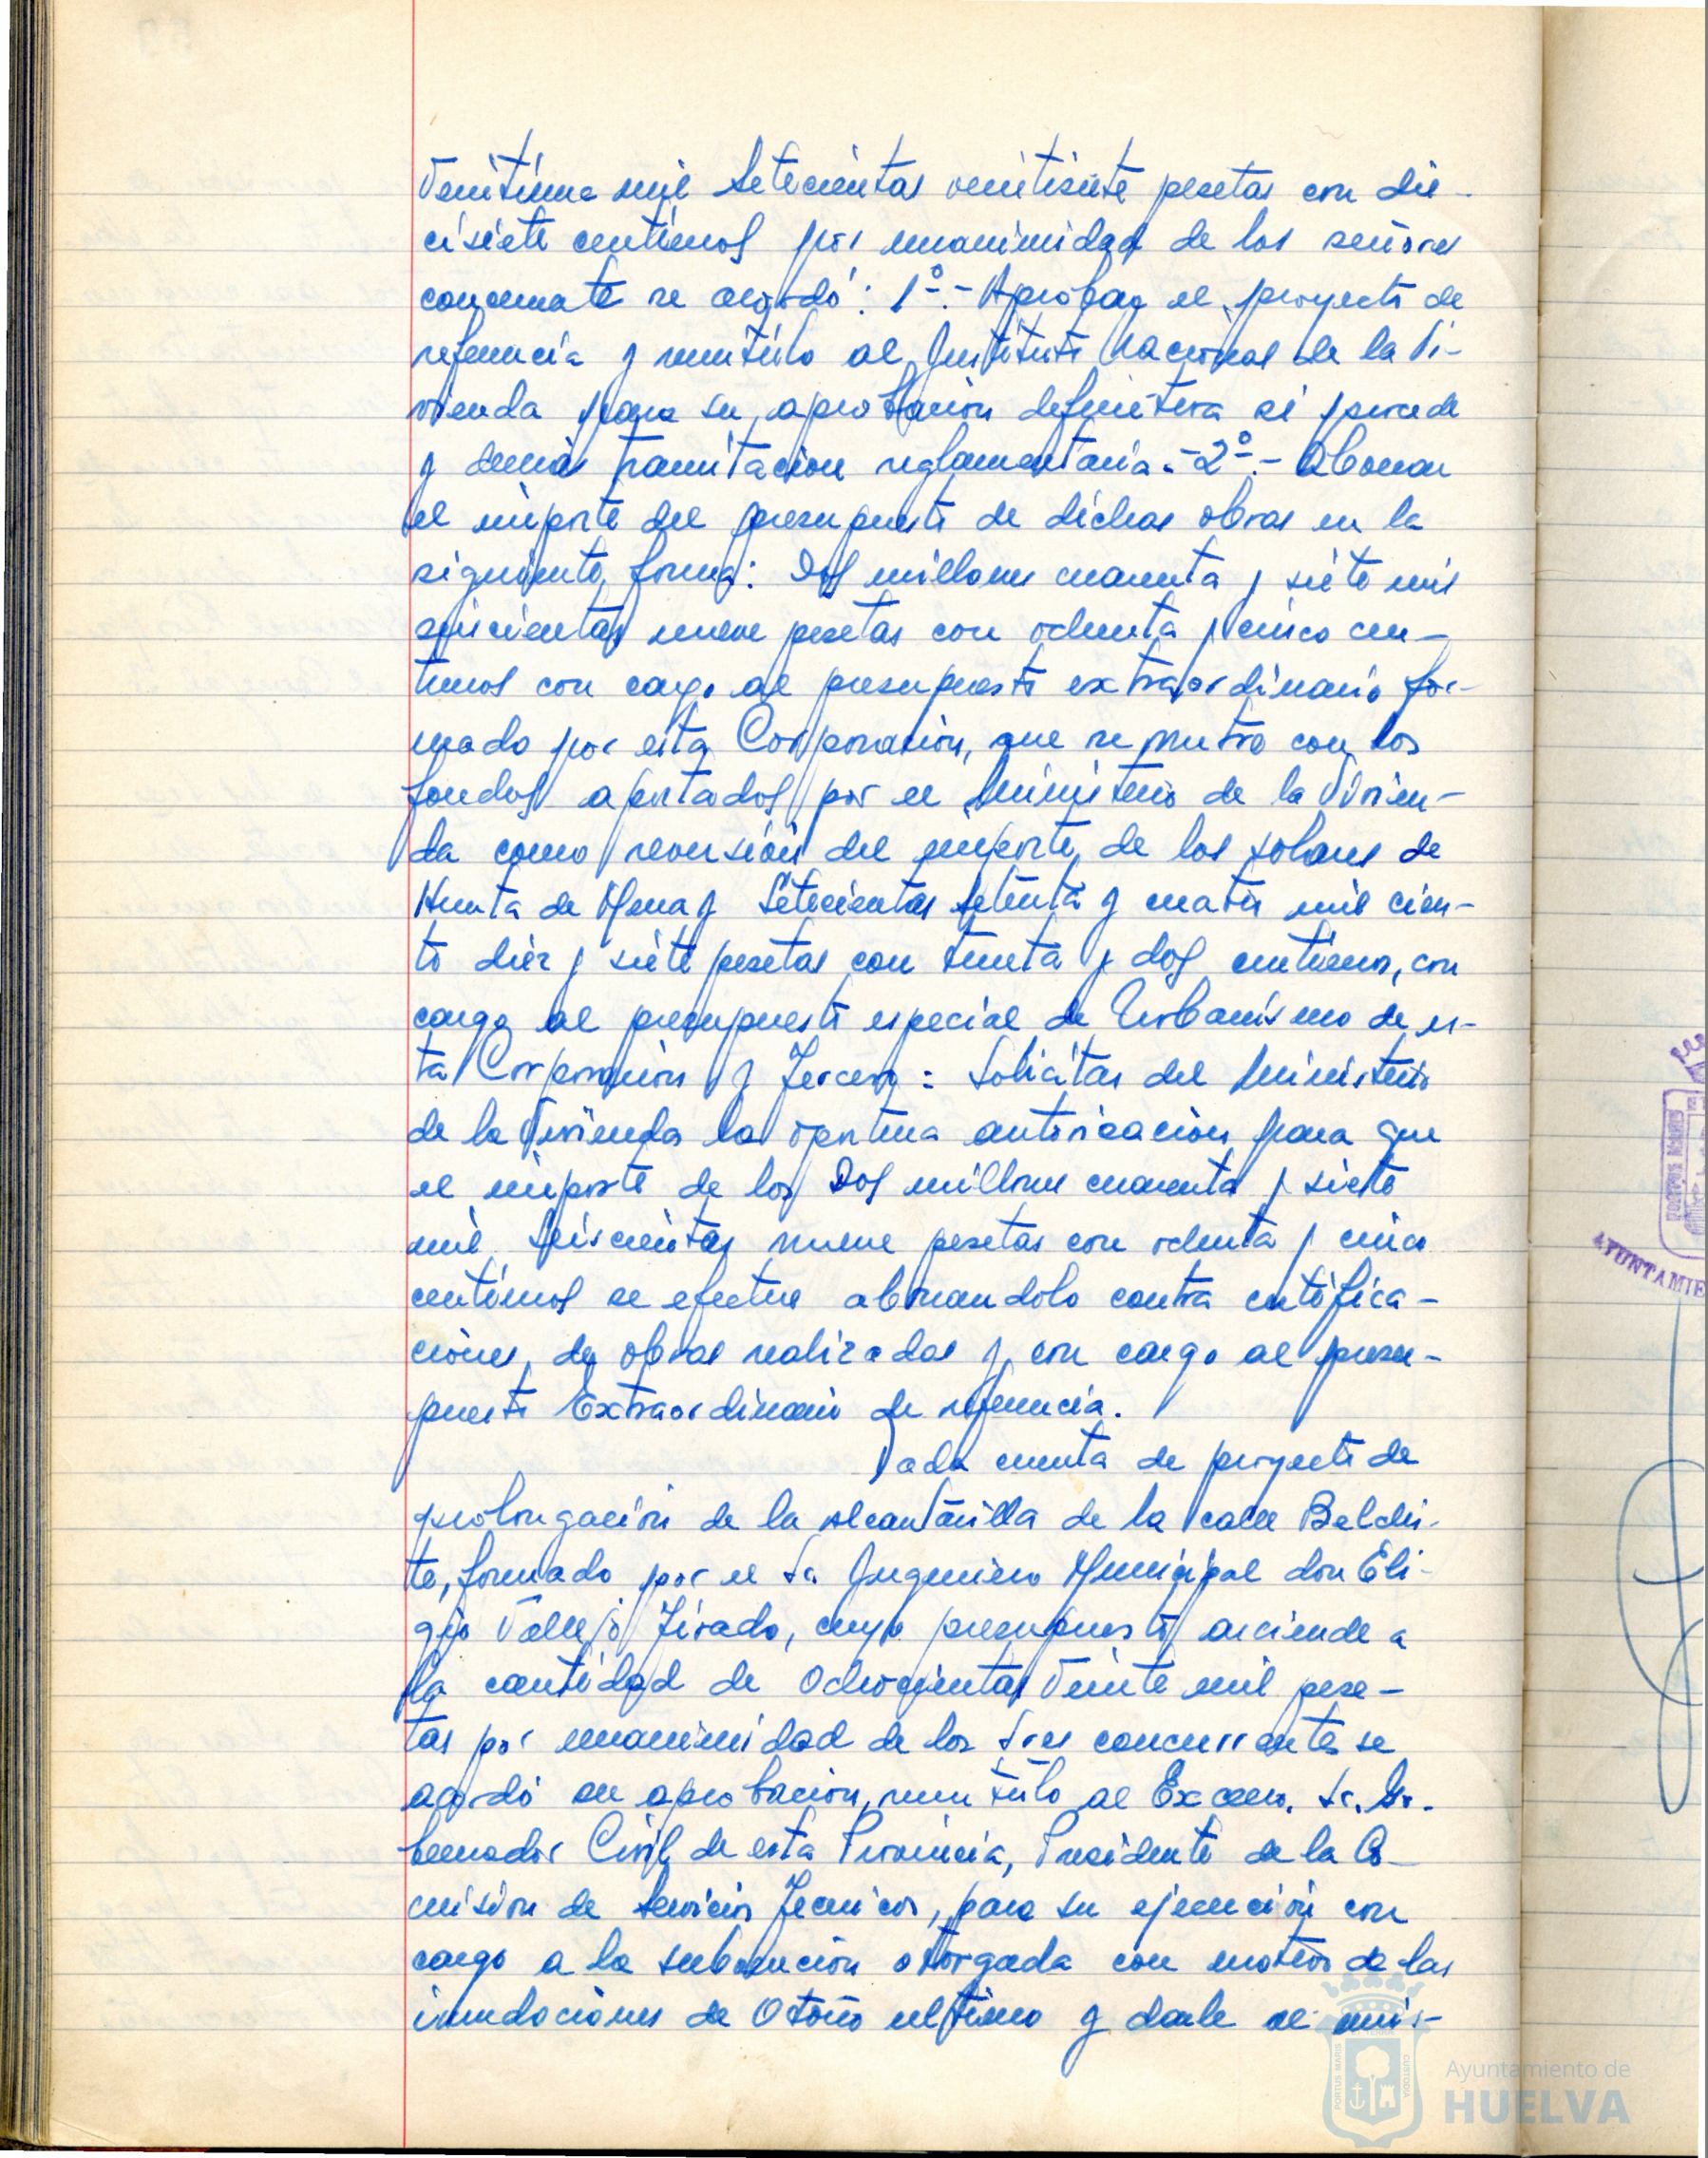 Veintiuna mil Setecientas veintisiete pesetas con die-
cisiete centimos por unanimidad de los señores
concurrente se acordó: 1º.- Aprobar el proyecto de
referencia y remitirlo al Instituto Nacional de la Vi-
vienda para su aprobacion definitiva si procede
y demás tramitacion reglamentaria.- 2º.- Abonar
el importe del presupuesto de dichas obras en la
siguiente forma: Dos millones cuarenta y siete mil
seiscientas nueve pesetas con ochenta y cinco cen-
timos con cargo al presupuesto extraordinario for-
mado por esta Corporacion, que se nutre con los
fondos aportados por el Ministerio de la Vivien-
da como reversión del importe de los solares de
Huerta de Mena y Setecientas setenta y cuatro mil cien-
to diez y siete pesetas con treinta y dos centimos, con
cargo al presupuesto especial de Urbanismo de es-
ta Corporacion y Tercero: Solicitar del Ministerio
de la Vivienda la oportuna autorizacion para que
el importe de los Dos millones cuarenta y siete
mil Seiscientas nueve pesetas con ochenta y cinco
centimos se efectue abonandolo contra certifica-
ciones de obras realizadas y con cargo al presu-
puesto Extraordinario de referencia.
Dada cuenta de proyecto de
prolongación de la alcantarilla de la calle Belchi-
te, formado por el Sr. Ingeniero Municipal don Eli-
gio Vallejo Tirado, cuyo presupuesto asciende a
la cantidad de Ochocientas Veinte mil pese-
tas por unanimidad de los Sres concurrentes se
acordó su aprobacion, remitirlo al Excmo. Sr. Go-
bernador Civil de esta Provincia, Presidente de la Co-
mision de Servicios Tecnicos, para su ejecución con
cargo a la subvencion otorgada con motivo de las
inundaciones de Otoño ultimo y darle al mis-
PORTUS MARIS
AYUNTAMIE
PORTUS MARIS
CUSTODIA
Ayuntamiento de
HUELVA